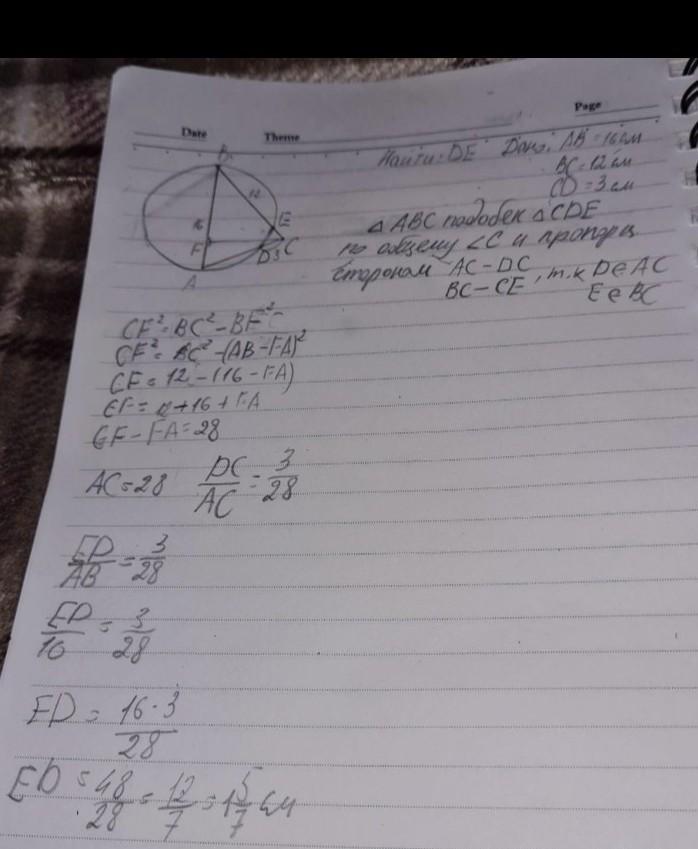 Date Theme Page
Найти: DE Дано: AB = 16 см
BC = 12 см
CD = 3 см
B
12
E
F
C
D 3
A
△ ABC подобен △ CDE
по общему ∠C и пропорц
сторонам AC – DC, т.к D ∈ AC
BC – CE E ∈ BC
CF² = BC² – BF² =
CF² = BC² – (AB – FA)²
CF = 12 – (16 – FA)
CF = 12 + 16 + FA
CF – FA = 28
AC = 28 DC/AC = 3/28
ED/AB = 3/28
ED/16 = 3/28
ED = 16 · 3/28
ED = 48/28 = 12/7 = 1 5/7 см